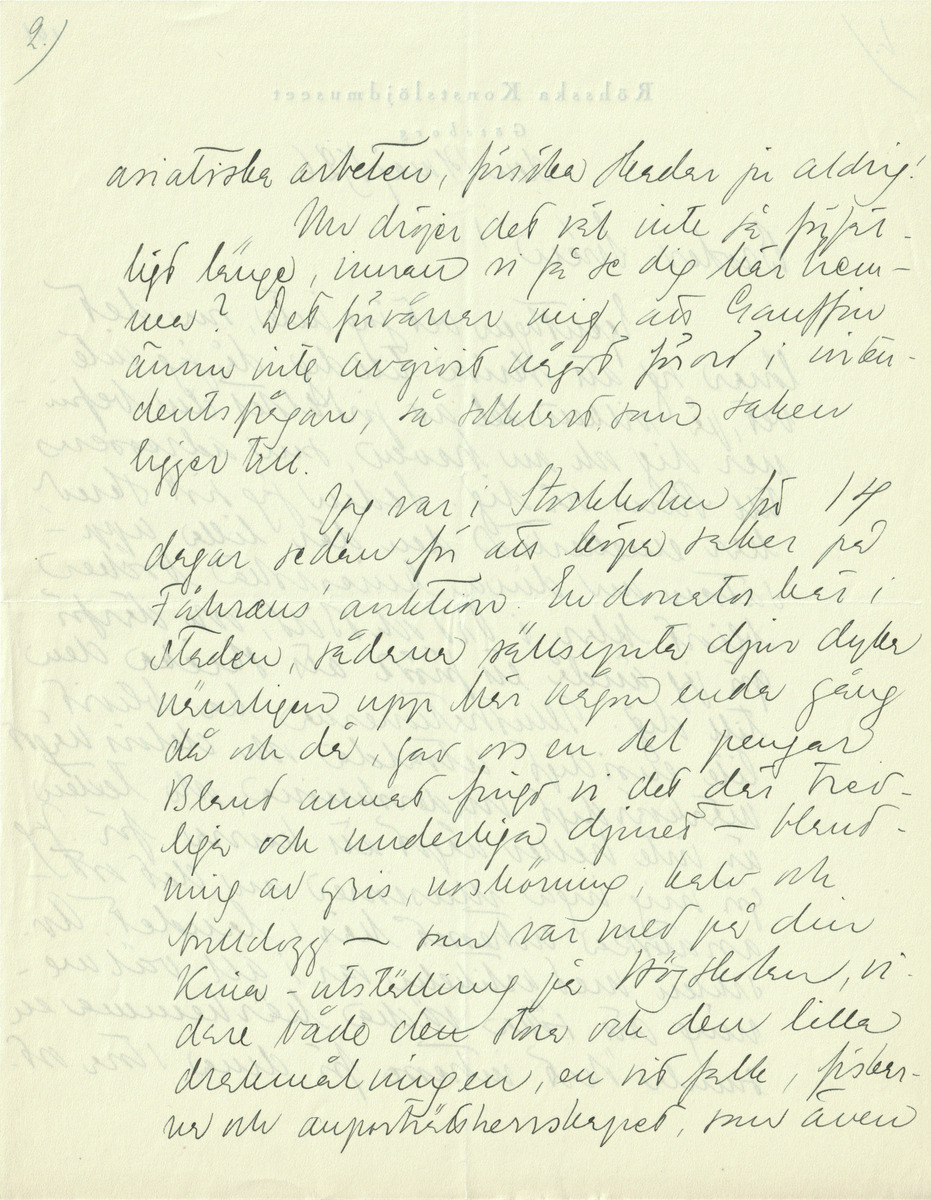 2.)
asiatiska arbeten, försöka skadar ju aldrig!
Nu dröjer det väl inte så förfär-
ligt länge, innan vi få se dig här hem-
ma? Det förvånar mig, att Gauffin
ännu inte avgivit något förord i inten-
dentsfrågan, så solklart som saken
ligger till.
Jag var i Stockholm för 14
dagar sedan för att köpa saker på
Fåhræus' auktion. En donator här i
staden, sådana sällsynta djur dyka
nämligen upp här någon enda gång
då och då, gav oss en del pengar
Bland annat fingo vi det där trev-
liga och underliga djuret – bland-
ning av gris, noshörning, kalv och
bulldogg – som var med på din
Kina-utställning på Högskolan, vi-
dare både den stora och den lilla
drakmålningen, en vit falk, fiskar-
na och anporträttsherrskapet, som även